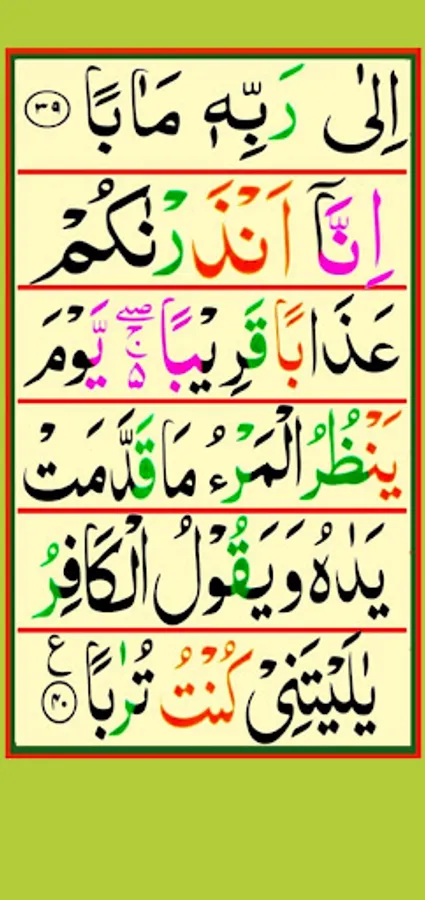 اِلٰى رَبِّهٖ مَاٰبًا ﴿۳۹﴾
اِنَّاۤ اَنْذَرْنٰكُمْ
عَذَابًا قَرِيْبًا ۖۚ۬ ۵ يَّوْمَ
يَنْظُرُ الْمَرْءُ مَا قَدَّمَتْ
يَدٰهُ وَيَقُوْلُ الْكَافِرُ
يٰلَيْتَنِىْ كُنْتُ تُرٰبًا ﴿۴۰﴾ ع